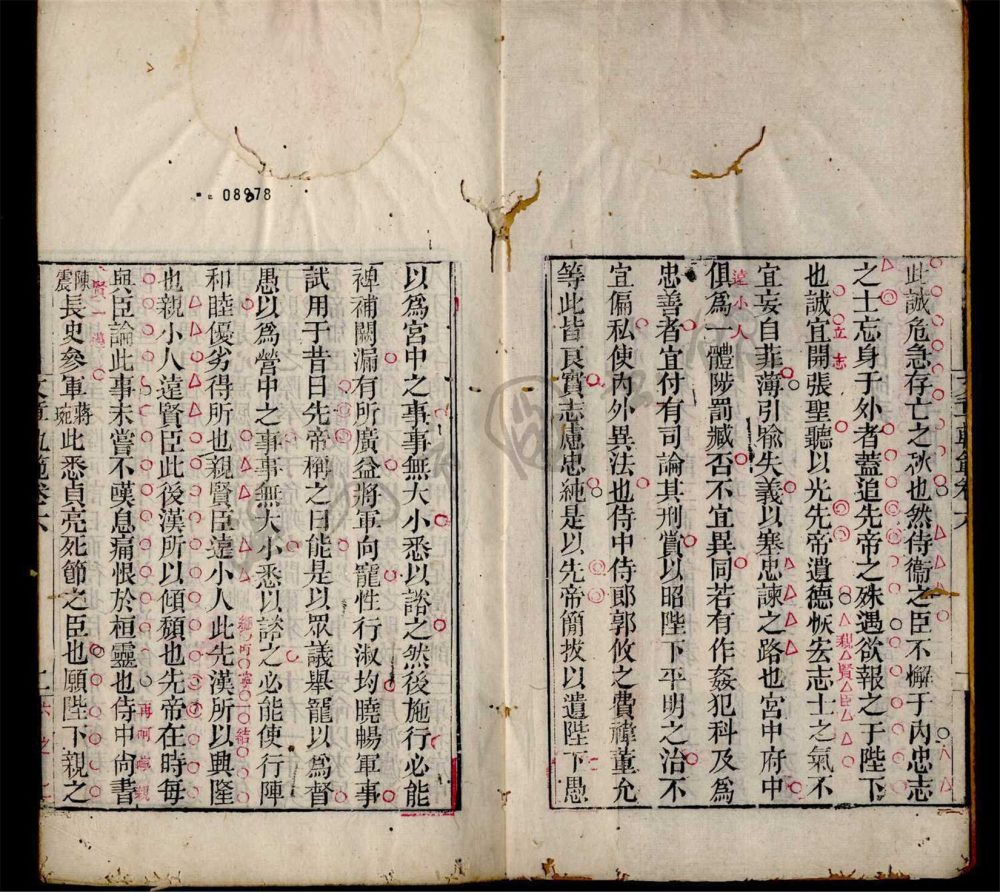 08978
此誠危急存亡之秋也然侍衞之臣不懈于內忠志
之士忘身于外者蓋追先帝之殊遇欲報之于陛下
立志
也誠宜開張聖聽以光先帝遺德恢宏志士之氣不
親賢臣
宜妄自菲薄引喻失義以塞忠諫之路也宮中府中
遠小人
俱爲一體陟罰臧否不宜異同若有作姦犯科及爲
忠善者宜付有司論其刑賞以昭陛下平明之治不
宜偏私使內外異法也侍中侍郎郭攸之費禕董允
等此皆良實志慮忠純是以先帝簡拔以遺陛下愚
以爲宮中之事事無大小悉以諮之然後施行必能
裨補闕漏有所廣益將軍向寵性行淑均曉暢軍事
試用于昔日先帝稱之曰能是以眾議舉寵以爲督
愚以爲營中之事事無大小悉以諮之必能使行陣
和睦優劣得所也親賢臣遠小人此先漢所以興隆
也親小人遠賢臣此後漢所以傾頹也先帝在時每
與臣論此事未嘗不嘆息痛恨於桓靈也侍中尚書
陳震長史參軍蔣琬此悉貞亮死節之臣也願陛下親之
文章軌範卷六